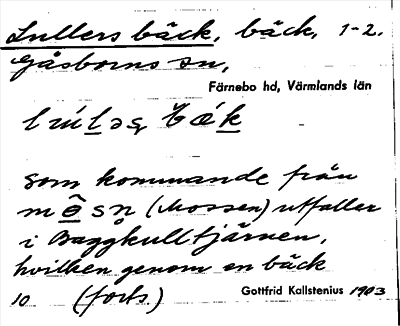 Lullers bäck, bäck, 1-2.
Gåsborns sn,
Färnebo hd, Värmlands län
som kommande från
(Mossen) utfaller
i Baggkulltjärnen,
hvilken genom en bäck
10 (forts.) Gottfrid Kallstenius 1903